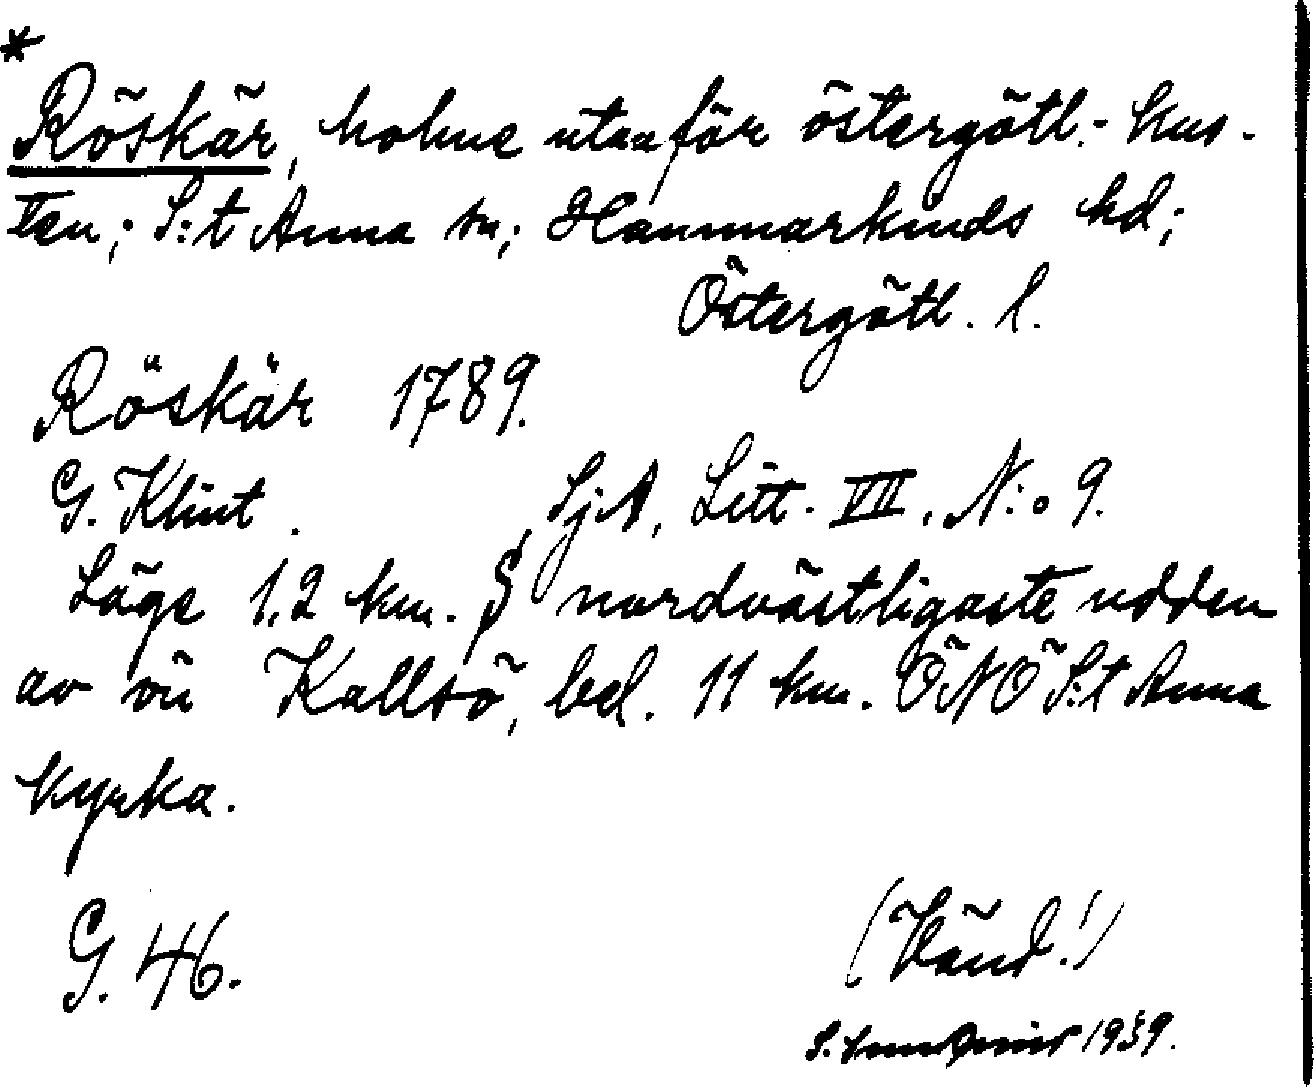 *
Röskär, holme utanför östergötl.-kus-
ten; S:t Anna sn; Hammarkinds hd;
Östergötl. l.
Röskär 1789.
G. Klint. SjA, Litt. VII, N:o 9.
Läge 1,2 km. S nordvästligaste udden
av ön Kallsö, bel. 11 km. ÖNÖ S:t Anna
kyrka.
G. 46.
(Vänd!)
S. 1939.